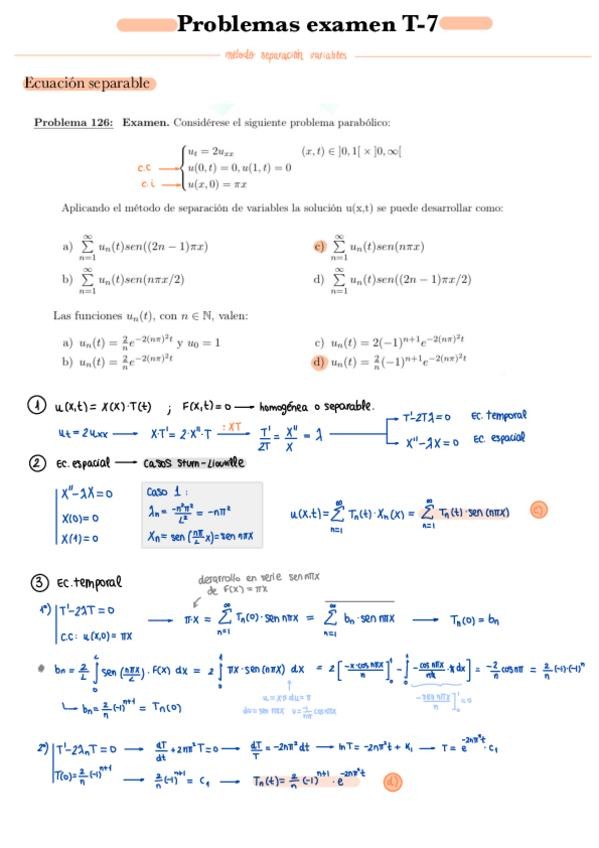 Problemas examen T-7
método separación variables
Ecuación separable
Problema 126: Examen. Considérese el siguiente problema parabólico:
u_t = 2u_xx (x, t) ∈ ]0, 1[ × ]0, ∞[
c.c → u(0, t) = 0, u(1, t) = 0
c.i → u(x, 0) = πx
Aplicando el método de separación de variables la solución u(x,t) se puede desarrollar como:
a) ∑_{n=1}^{∞} u_n(t)sen((2n − 1)πx) c) ∑_{n=1}^{∞} u_n(t)sen(nπx)
b) ∑_{n=1}^{∞} u_n(t)sen(nπx/2) d) ∑_{n=1}^{∞} u_n(t)sen((2n − 1)πx/2)
Las funciones u_n(t), con n ∈ ℕ, valen:
a) u_n(t) = 2/n e^{−2(nπ)²t} y u_0 = 1 c) u_n(t) = 2(−1)^{n+1}e^{−2(nπ)²t}
b) u_n(t) = 2/n e^{−2(nπ)²t} d) u_n(t) = 2/n (−1)^{n+1}e^{−2(nπ)²t}
① u(x,t) = X(x)·T(t) ; F(x,t) = 0 → homogénea o separable.
u_t = 2u_xx → X·T' = 2·X''·T → :XT T'/2T = X''/X = λ
T'-2Tλ = 0 EC. temporal
X''-λX = 0 EC. espacial
② EC. espacial → Casos Sturm-Liouville
X''-λX = 0
X(0) = 0
X(1) = 0
Caso 1:
λn = -n²π²/L² = -nπ²
Xn = sen(nπ/L x) = sen nπx
u(x,t) = ∑_{n=1}^{∞} Tn(t)·Xn(x) = ∑_{n=1}^{∞} Tn(t)·sen(nπx) c)
③ EC. temporal
desarrollo en serie sen nπx
de F(x) = πx
1º) T'-2λT = 0
C.C: u(x,0) = πx
→ π·x = ∑_{n=1}^{∞} Tn(0)·sen nπx = ∑_{n=1}^{∞} bn·sen nπx → Tn(0) = bn
bn = 2/L ∫_0^L sen(nπx/L)·F(x) dx = 2 ∫_0^1 πx·sen(nπx) dx = 2[-x·cos nπx/n]_0^1 - ∫_0^1 -cos nπx/nπ ·π dx = -2/n cos nπ = 2/n (-1)·(-1)^n
u = xπ du = π
dv = sen nπx v = -1/nπ cos nπx
bn = 2/n (-1)^{n+1} = Tn(0)
2º) T'-2λnT = 0 → dT/dt + 2nπ²T = 0 → dT/T = -2nπ²dt → lnT = -2nπ²t + K1 → T = e^{-2nπ²t}·C1
T(0) = 2/n (-1)^{n+1} → 2/n (-1)^{n+1} = C1 → Tn(t) = 2/n (-1)^{n+1}·e^{-2nπ²t} d)